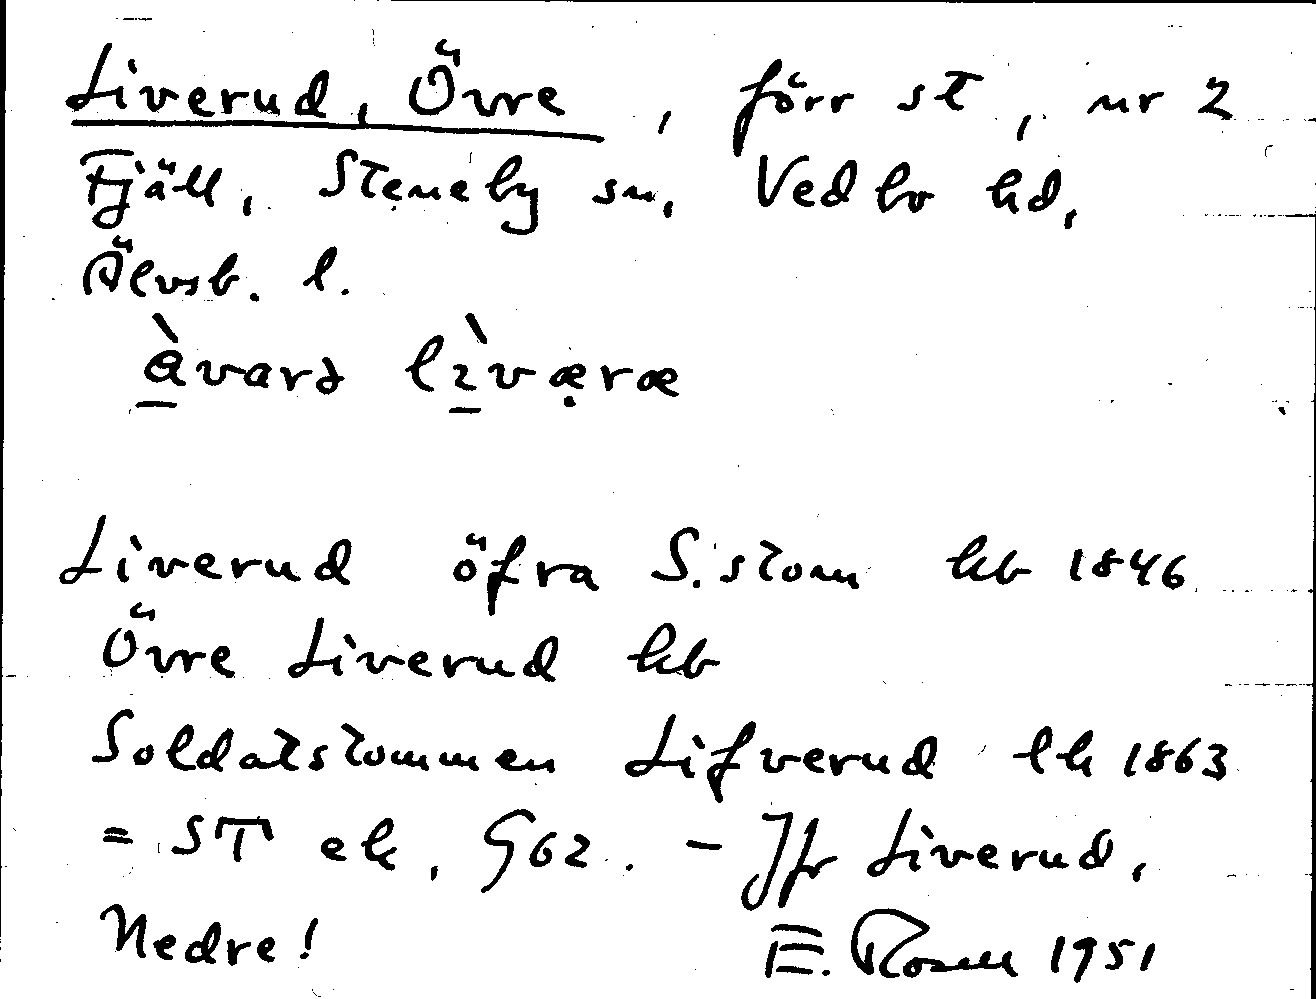 Liverud, Övre, förr st, nr 2
Fjäll, Steneby sn, Vedbo hd,
Älvsb. l.
àvarə lìværæ
Liverud öfra S.stom hb 1846
Övre Liverud hb
Soldatstommen Lifverud lh 1863
= ST ek, G62. - Jfr Liverud,
Nedre! E. Rosell 1951